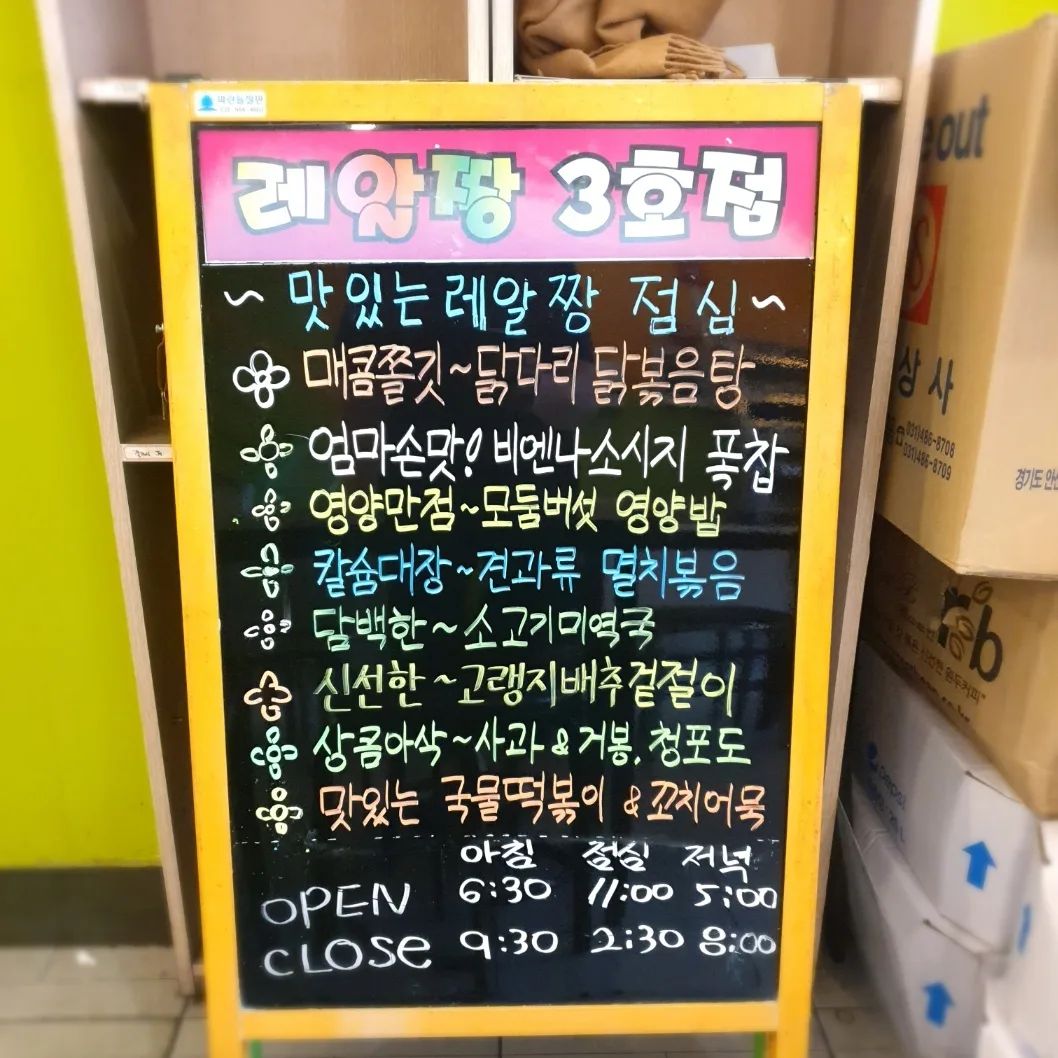 레알짱 3호점
~ 맛있는 레알짱 점심 ~
매콤쫄깃~닭다리 닭볶음탕
엄마손맛! 비엔나소시지 폭찹
영양만점~모둠버섯 영양밥
칼슘대장~견과류 멸치볶음
담백한~소고기미역국
신선한~고랭지배추겉절이
상콤아삭~사과&거봉, 청포도
맛있는 국물떡볶이 &꼬치어묵
아침 점심 저녁
OPEN 6:30 11:00 5:00
CLOSE 9:30 2:30 8:00
e out
상사
031)486-8708
031)486-8709
경기도 안산